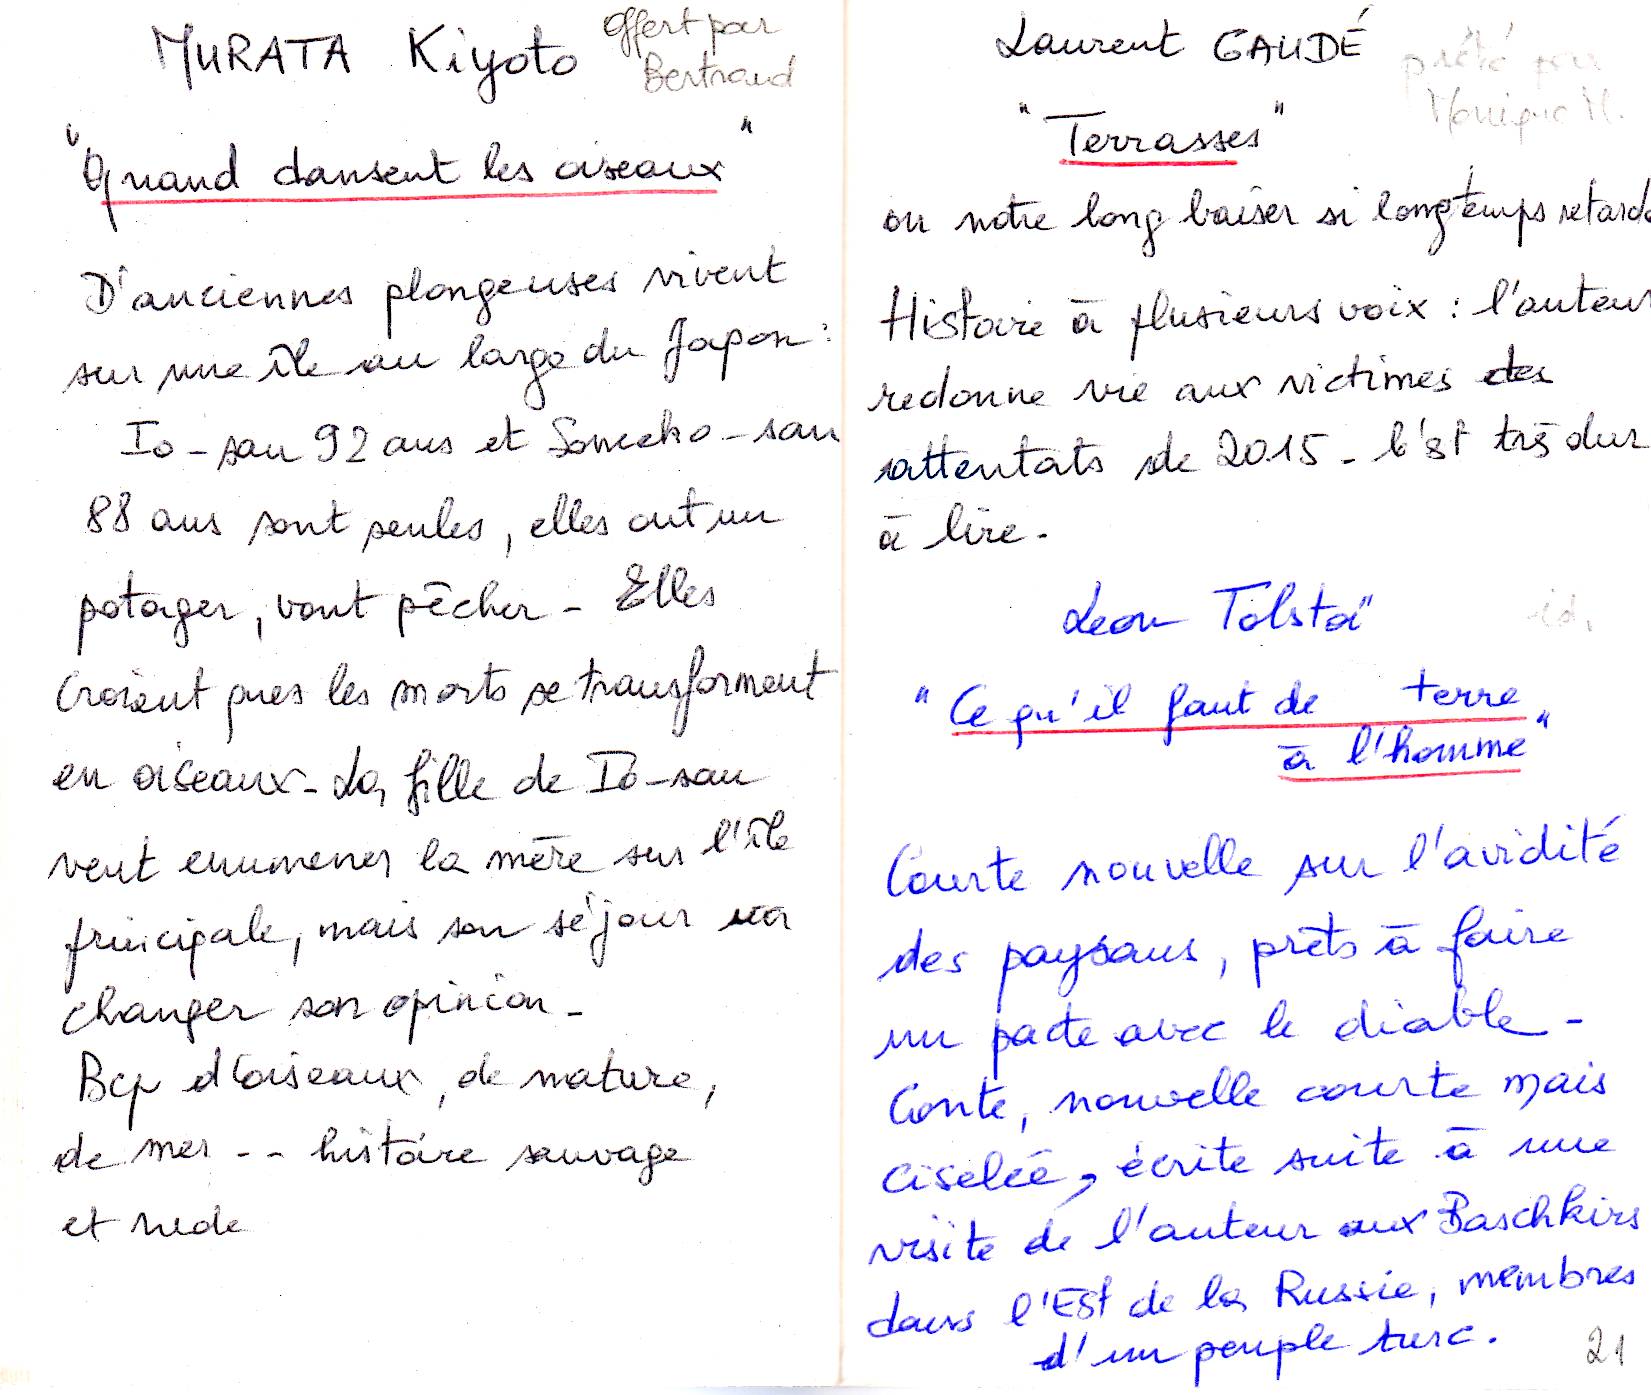 MURATA Kiyoto
offert par
Bertrand
"Quand dansent les oiseaux"
D'anciennes plongeuses vivent
sur une île au large du Japon :
Io-san 92 ans et Someko-san
88 ans sont seules, elles ont un
potager, vont pêcher - Elles
croient ques les morts se transforment
en oiseaux - La fille de Io-san
veut emmener la mère sur l'île
principale, mais son séjour va
changer son opinion -
Bcp d'oiseaux, de nature,
de mer -- histoire sauvage
et rude
Laurent GAUDÉ
prêté par
Monique M.
"Terrasses"
ou notre long baiser si longtemps retardé
Histoire à plusieurs voix : l'auteur
redonne vie aux victimes des
attentats de 2015 - C'est très dur
à lire.
Leon Tolstoï
id.
"Ce qu'il faut de terre
à l'homme"
Courte nouvelle sur l'avidité
des paysans, prêts à faire
un pacte avec le diable -
Conte, nouvelle courte mais
ciselée, écrite suite à une
visite de l'auteur aux Baschkirs
dans l'Est de la Russie, membres
d'un peuple turc.
21